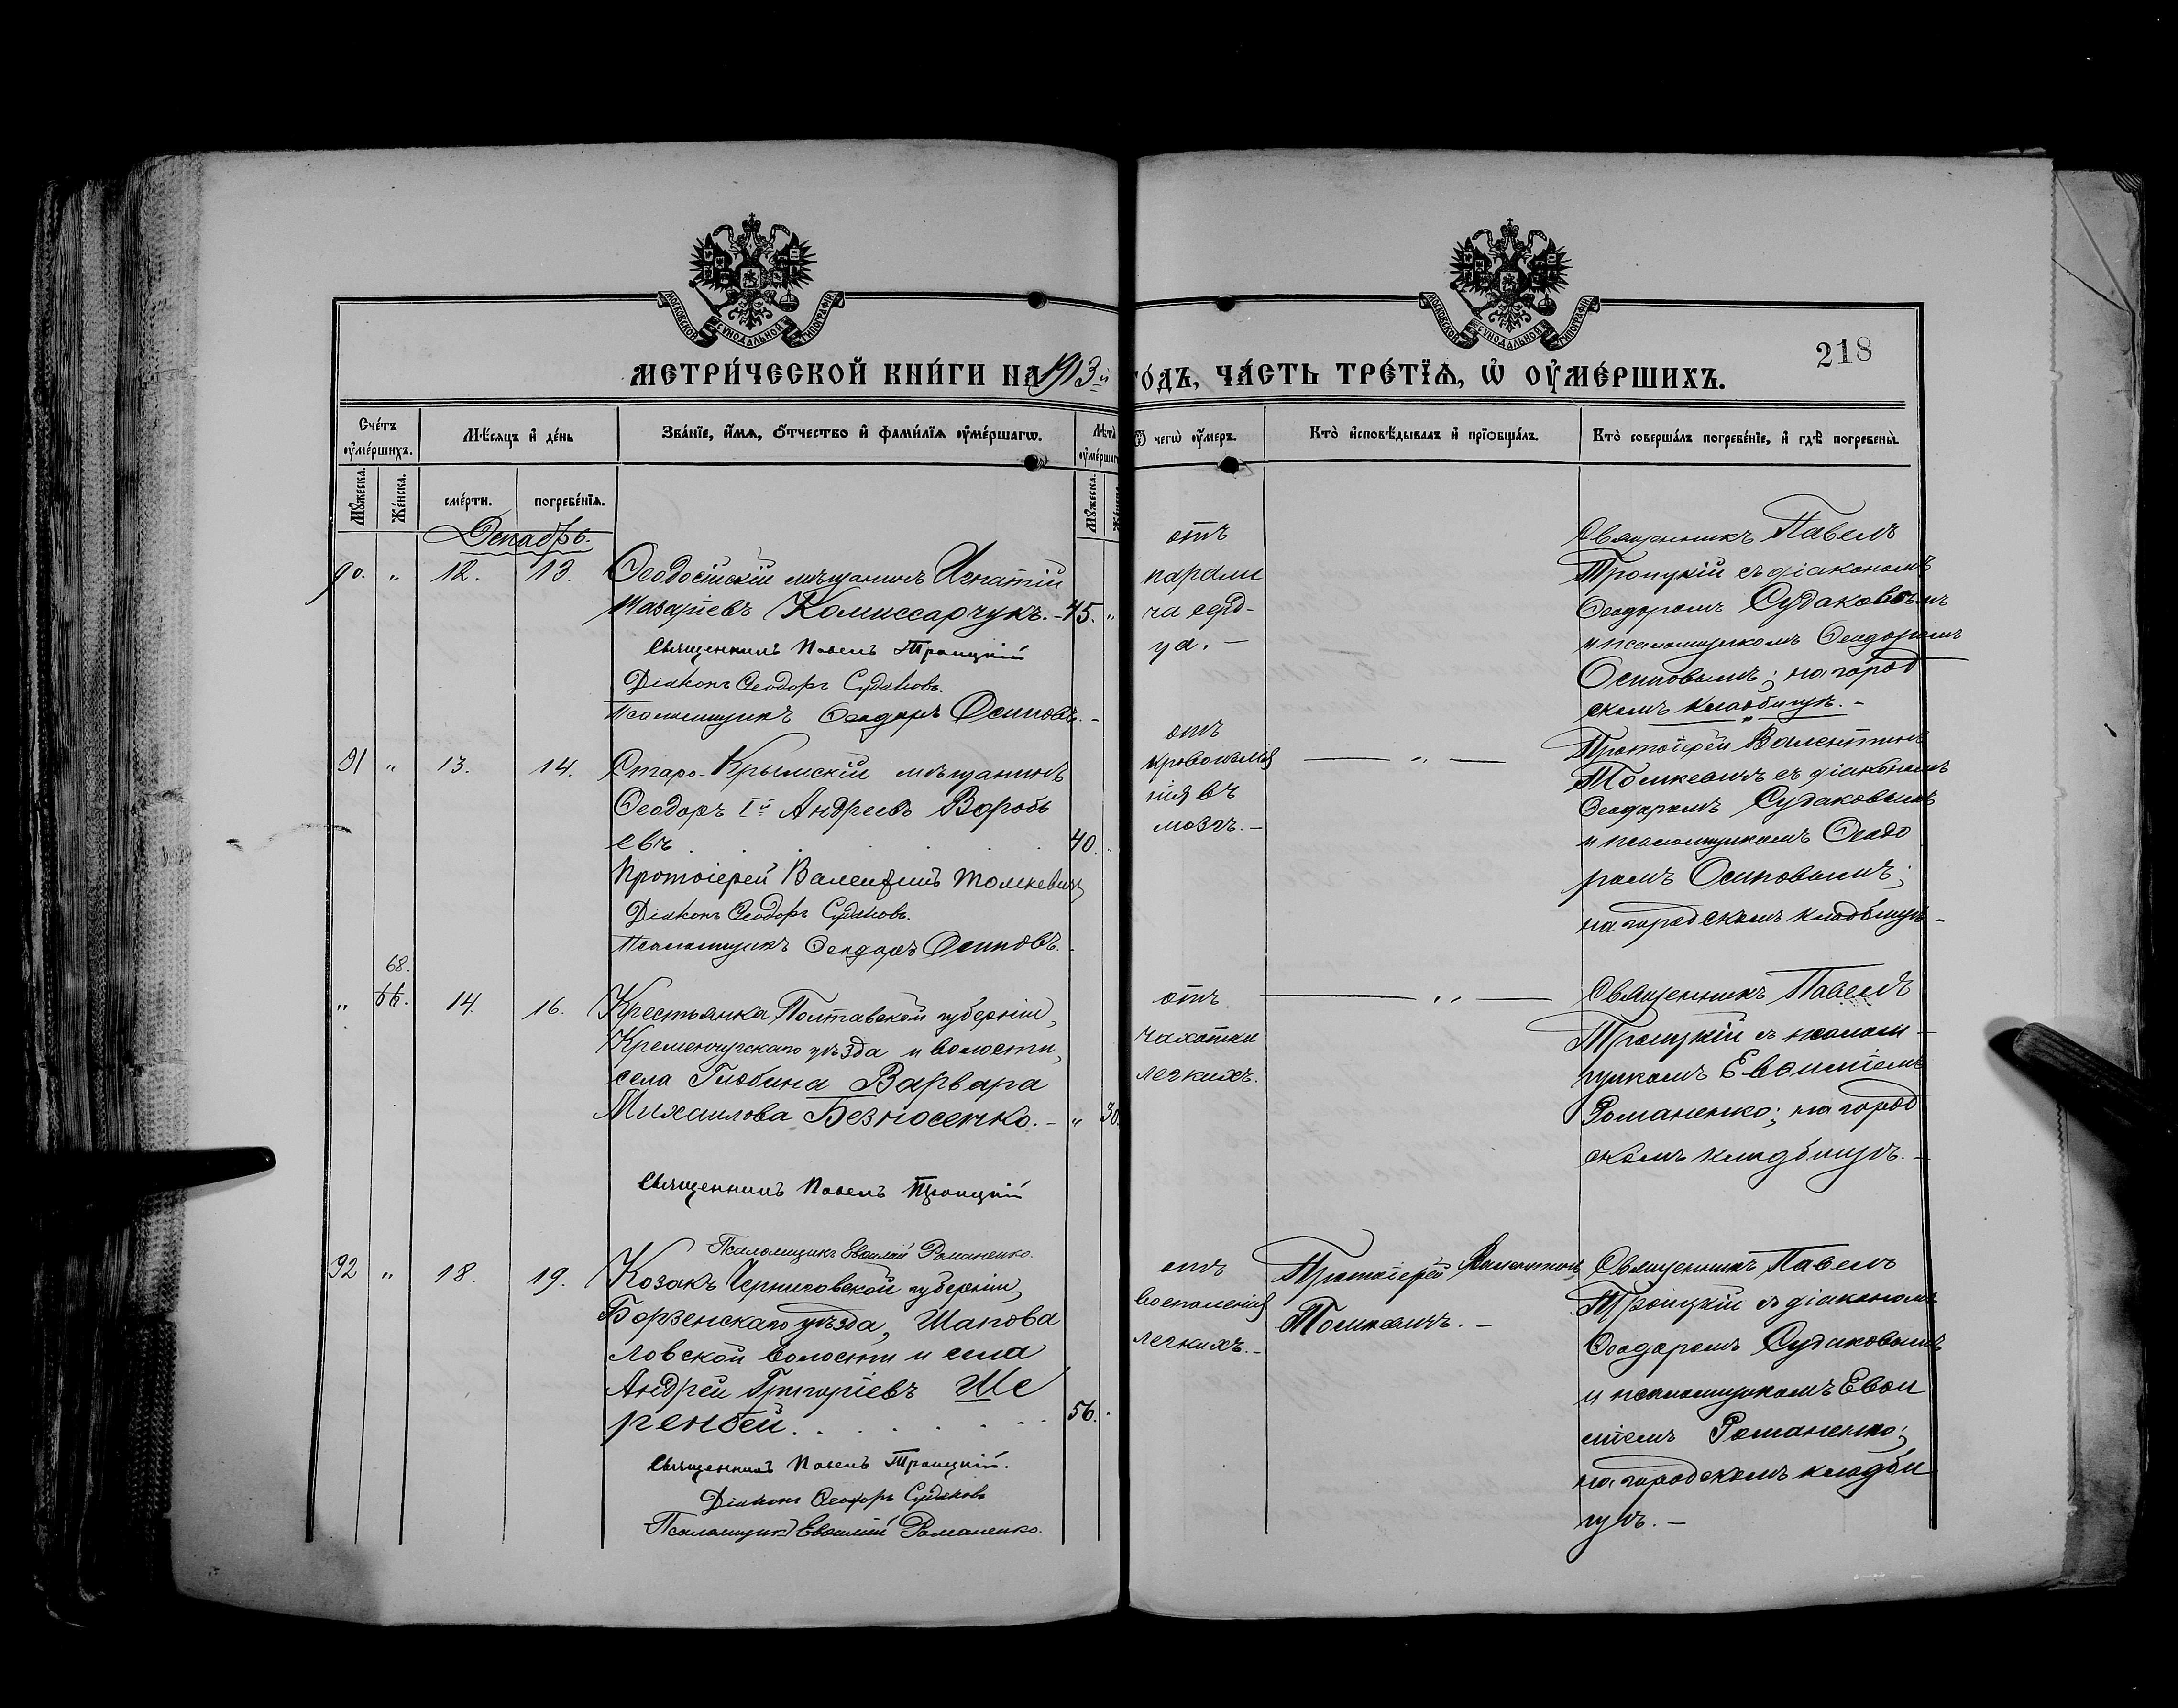 МОСКОВСКОЙ СУНОДАЛЬНОЙ ТИПОГРАФІИ
МОСКОВСКОЙ СУНОДАЛЬНОЙ ТИПОГРАФІИ
218
МЕТРИ́ЧЕСКОЙ КНИ́ГИ НА 1913й ГО́ДЪ, ЧА́СТЬ ТРЕ́ТЇѦ, Ѡ҆ ОУ҆МЕ́РШИХЪ.
Сче́тъ оу҆ме́ршихъ.
Мѣ́сѧцъ и҆ де́нь
Зва́нїе, и҆́мѧ, ѻ҆́тчество и҆ фами́лїѧ оу҆ме́ршагѡ.
Лѣ́та оу҆ме́ршаг
Ѿ чегѡ̀ оу҆́меръ.
Кто̀ и҆сповѣ́дывалъ и҆ прїѻбща́лъ.
Кто̀ соверша́лъ погребе́нїе, и҆ гдѣ̀ погребены̀.
Мꙋ́жеска.
Же́нска.
сме́рти.
погребе́нїѧ.
Мꙋ́жеска.
Же́нска.
Декабрь.
90. " 12. 13.
Ѳеодосійскій мѣщанинъ Игнатій
Назаріевъ Комиссарчукъ. - 45. "
Священникъ Павелъ Троицкій
Діаконъ Ѳеодоръ Судаковъ.
Псаломщикъ Ѳеодоръ Осиповъ. -
отъ
парали
ча серд-
ца. -
Священникъ Павелъ
Троицкій съ діакономъ
Ѳеодоромъ Судаковымъ
и псаломщикомъ Ѳеодоромъ
Осиповымъ; на город
скомъ кладбищѣ. -
91 " 13. 14.
Старо-Крымскій мѣщанинъ
Ѳеодоръ Iй Андреевъ Воробь
евъ . . . . . 40. "
Протоіерей Валентинъ Томкевичъ
Діаконъ Ѳеодоръ Судаковъ.
Псаломщикъ Ѳеодоръ Осиповъ. -
отъ
кровоизлія
нія въ
мозгъ. -
— " —
Протоіерей Валентинъ
Томкевичъ съ діакономъ
Ѳеодоромъ Судаковымъ
и псаломщикомъ Ѳеодо
ромъ Осиповымъ;
на городскомъ кладбищѣ -
68.
" 66. 14. 16.
Крестьянка Полтавской губерніи,
Кременчугскаго уѣзда и волости,
села Глобина Варвара
Михаилова Безносенко. - " 30.
Священникъ Павелъ Троицкій
Псаломщикъ Евѳимій Романенко.
отъ
чахотки
легкихъ.
— " —
Священникъ Павелъ
Троицкій съ псалом-
щикомъ Евѳиміемъ
Романенко; на город
скомъ кладбищѣ. -
92 " 18. 19.
Козакъ Черниговской губерніи,
Борзенскаго уѣзда, Шапова
ловской волости и села
Андрей Григоріевъ Ше
ренбей . . . . . 56. "
Священникъ Павелъ Троицкій.
Діаконъ Ѳеодоръ Судаковъ
Псаломщикъ Евѳимій Романенко.
отъ
воспаленія
легкихъ. -
Протоіерей Валентинъ
Томкевичъ. -
Священникъ Павелъ
Троицкій съ діакономъ
Ѳеодоромъ Судаковымъ
и псаломщикомъ Евѳи
міемъ Романенко;
на городскомъ кладби
щѣ. -